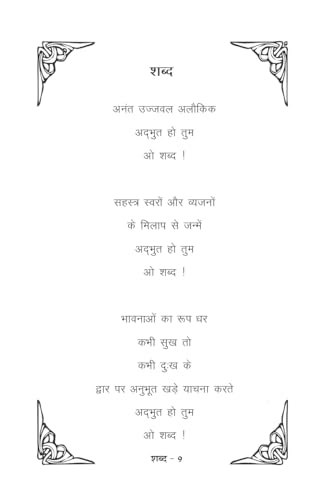 शब्द
अनंत उज्जवल अलौकिक
अद्भुत हो तुम
ओ शब्द !
सहस्त्र स्वरों और व्यजनों
के मिलाप से जन्में
अद्भुत हो तुम
ओ शब्द !
भावनाओं का रूप धर
कभी सुख तो
कभी दुःख के
द्वार पर अनुभूत खड़े याचना करते
अद्भुत हो तुम
ओ शब्द !
शब्द – १